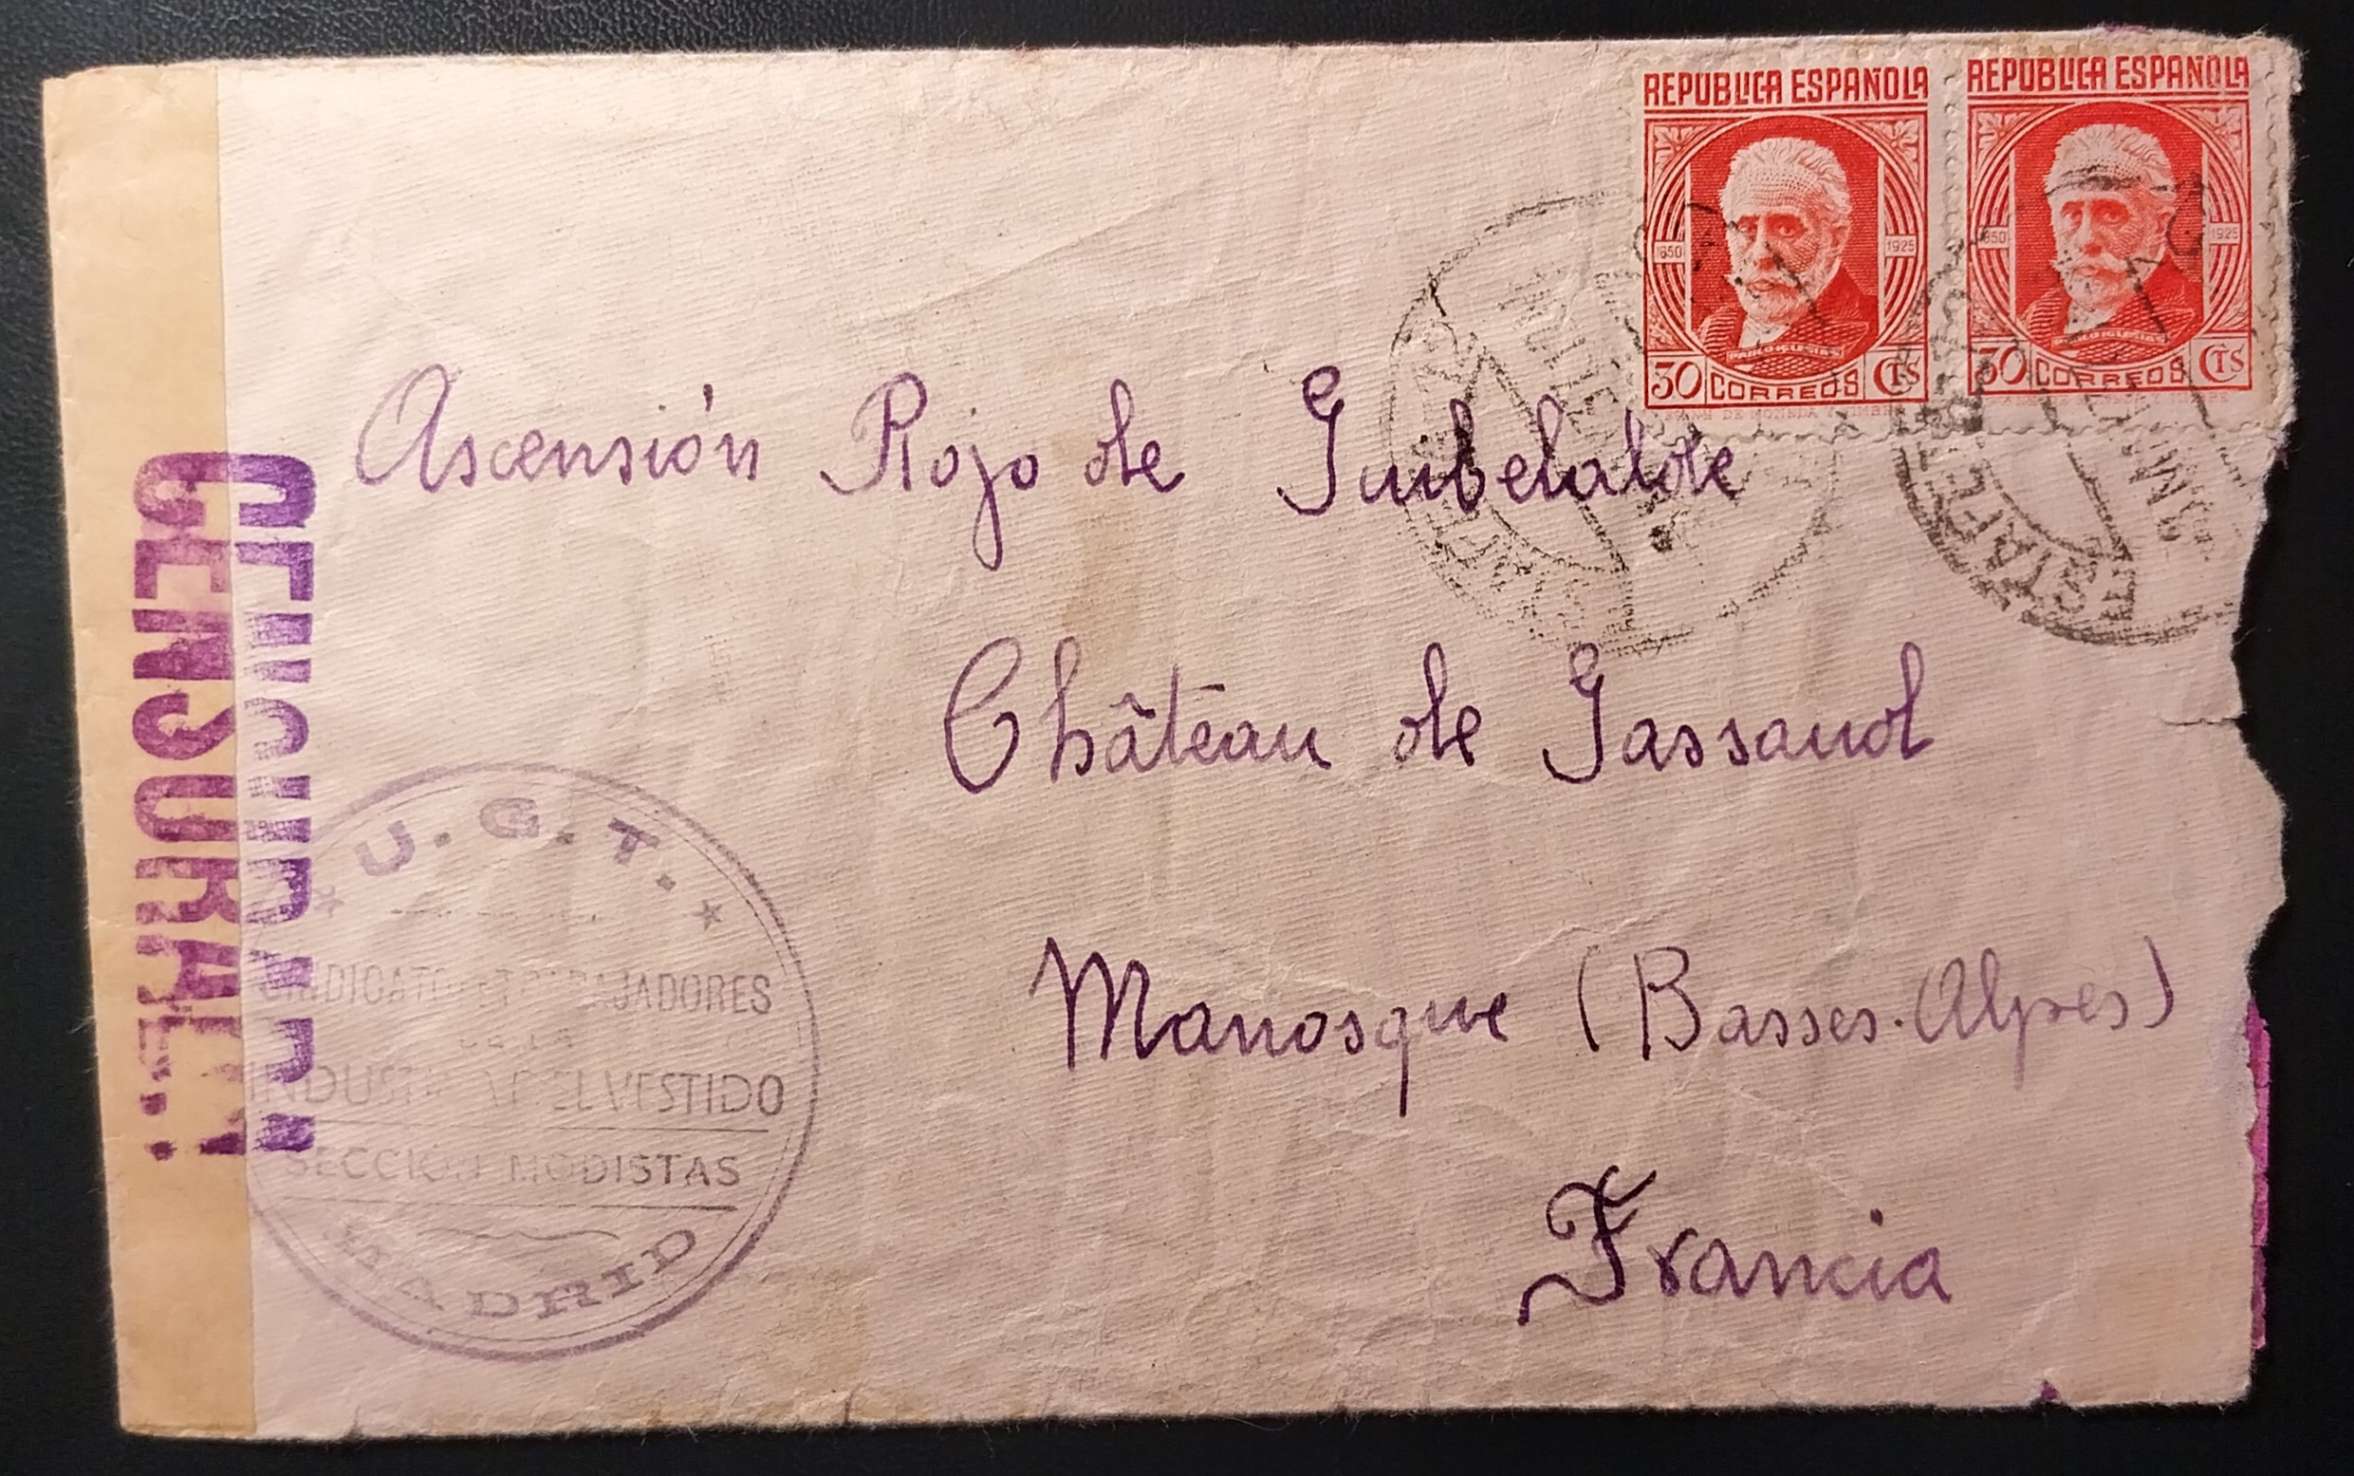 REPUBLICA ESPAÑOLA
1850 1925
PABLO IGLESIAS
30 CORREOS CTS
REPUBLICA ESPAÑOLA
1850 1925
PABLO IGLESIAS
30 CORREOS CTS
Ascensión Rojo de Gubelalde
Château de Gassaud
Manosque (Basses-Alpes)
Francia
CENSURA
CENSURA
U.G.T.
SINDICATO DE TRABAJADORES
DE LA
INDUSTRIA DEL VESTIDO
SECCION MODISTAS
MADRID